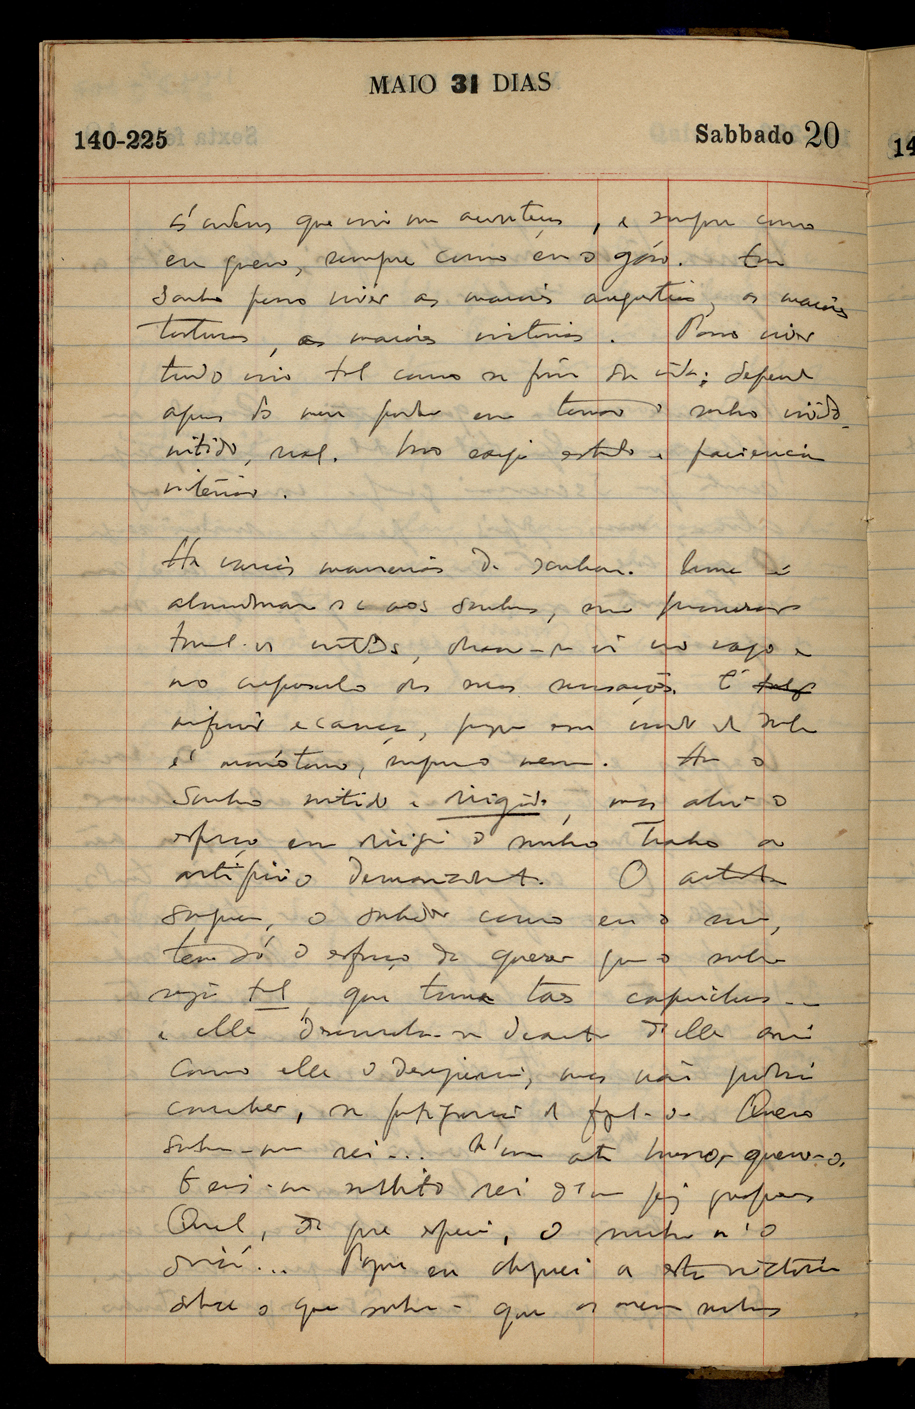 MAIO 31 DIAS
140-225
Sabbado 20
14
ás ordens que me acontecem, e sempre como
eu quero, sempre como eu o góso. Em
sonho posso viver as maiores angustias, as maiores
torturas, as maiores victorias. Posso viver
tudo isso tal como se fôra da vida; depende
apenas do meu poder em tornar o sonho vivido,
nitido, real. Isso exige estudo e paciencia
interior.
Ha varias maneiras de sonhar. Uma é
abandonar-se aos sonhos, sem procurar
tornal-os nitidos, deixar-se ir no vago e
no crepusculo das suas sensações. É
inferior e cansa, porque esse modo de sonhar
é monótono, sempre o mesmo. Ha o
sonho nitido e dirigido, mas ahi o
esforço em dirigir o sonho trahe o
artificio demasiadamente. O artista
supremo, o sonhador como eu o sou,
tem só o esforço de querer que o sonho
seja tal, que tome taes caprichos...
e elle desenrola-se deante d'elle assim
como elle o desejaria, mas não poderia
conceber, se fatigaria de fazel-o. Quero
sonhar-me rei... N'um acto brusco, quero-o.
E eis-me subito rei d'um paiz
Qual, de que especie, o sonho m'o
dirá... Porque eu cheguei a esta victoria
sobre o que sonho - que os meus sonhos